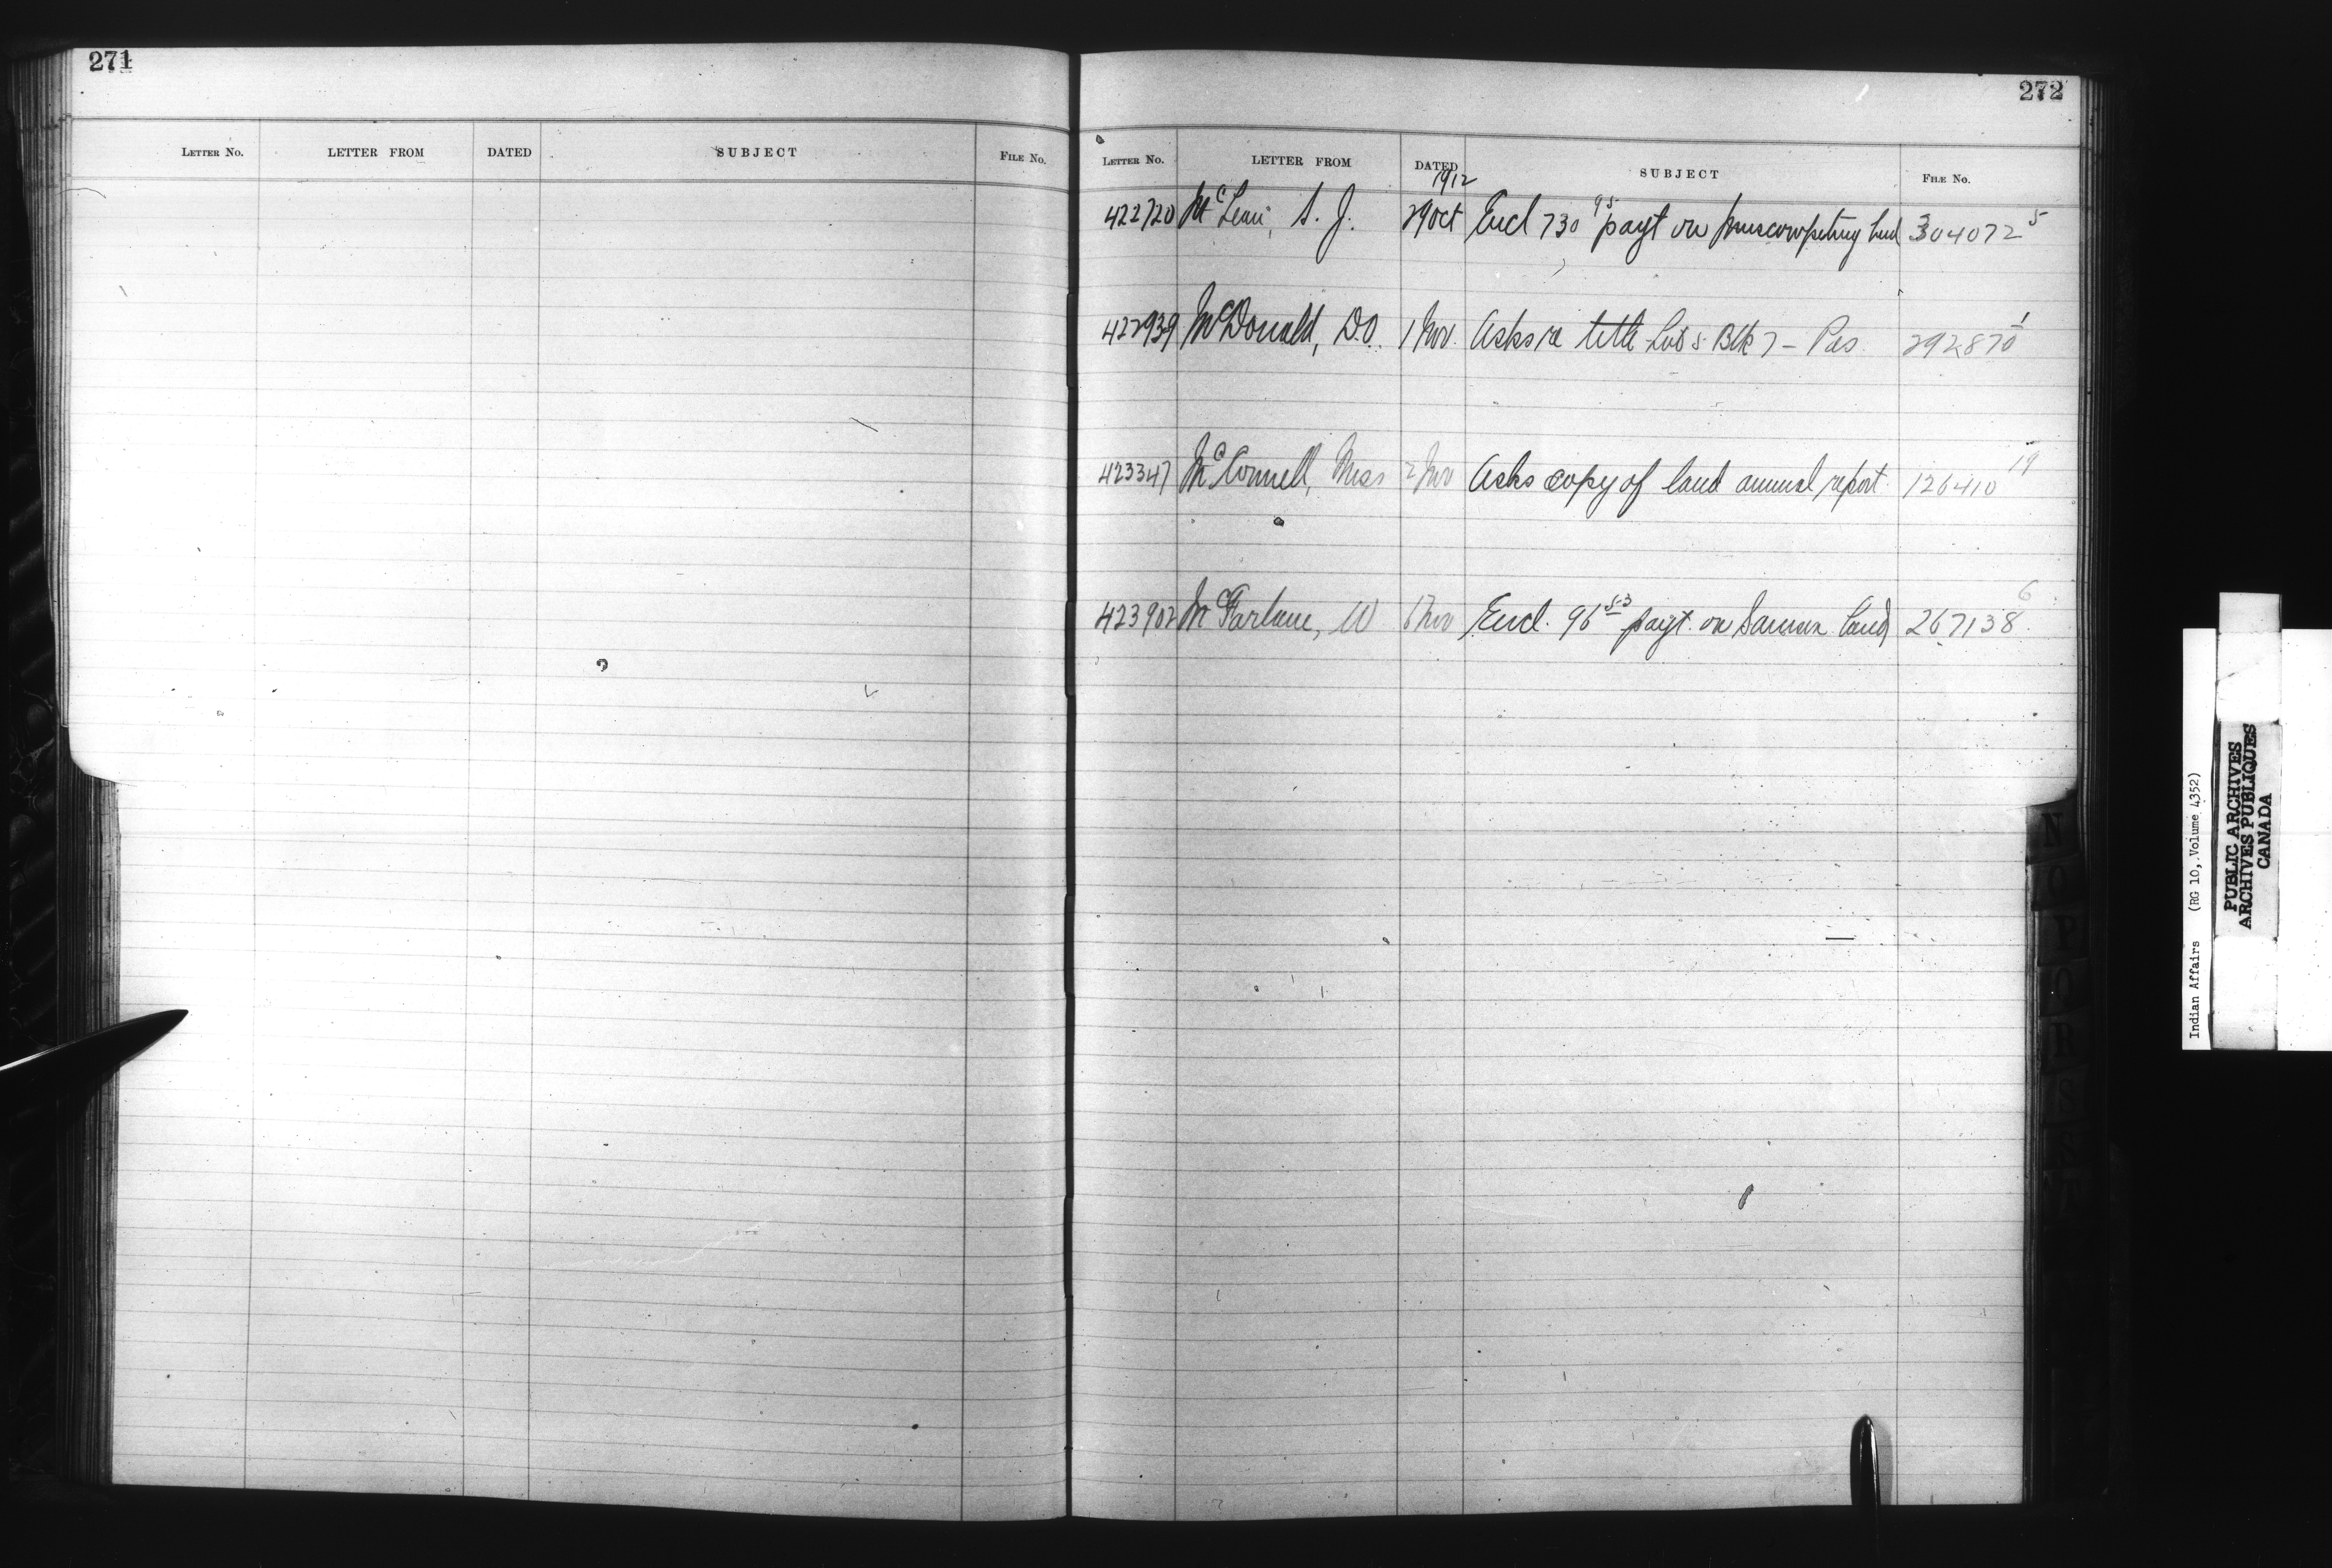 271
LETTER No. LETTER FROM DATED SUBJECT FILE No.
272
LETTER No. LETTER FROM DATED SUBJECT FILE No.
1912
422720 McLean, S. J. 29 Oct Encl 730 95 payt on Muscowpetung land 304072 5
422939 McDonald, D.O. 1 Nov. Asks re title Lot 5 Blk 7 - Pas. 292870 1
423347 McConnell, Miss 2 Nov Asks copy of land annual report. 126410 19
423902 McFarlane, W 6 Nov Encl. 96 53 payt. on land 267138 6
N
O
P
Q
R
S
Indian Affairs (RG 10, Volume 4352)
PUBLIC ARCHIVES
ARCHIVES PUBLIQUES
CANADA